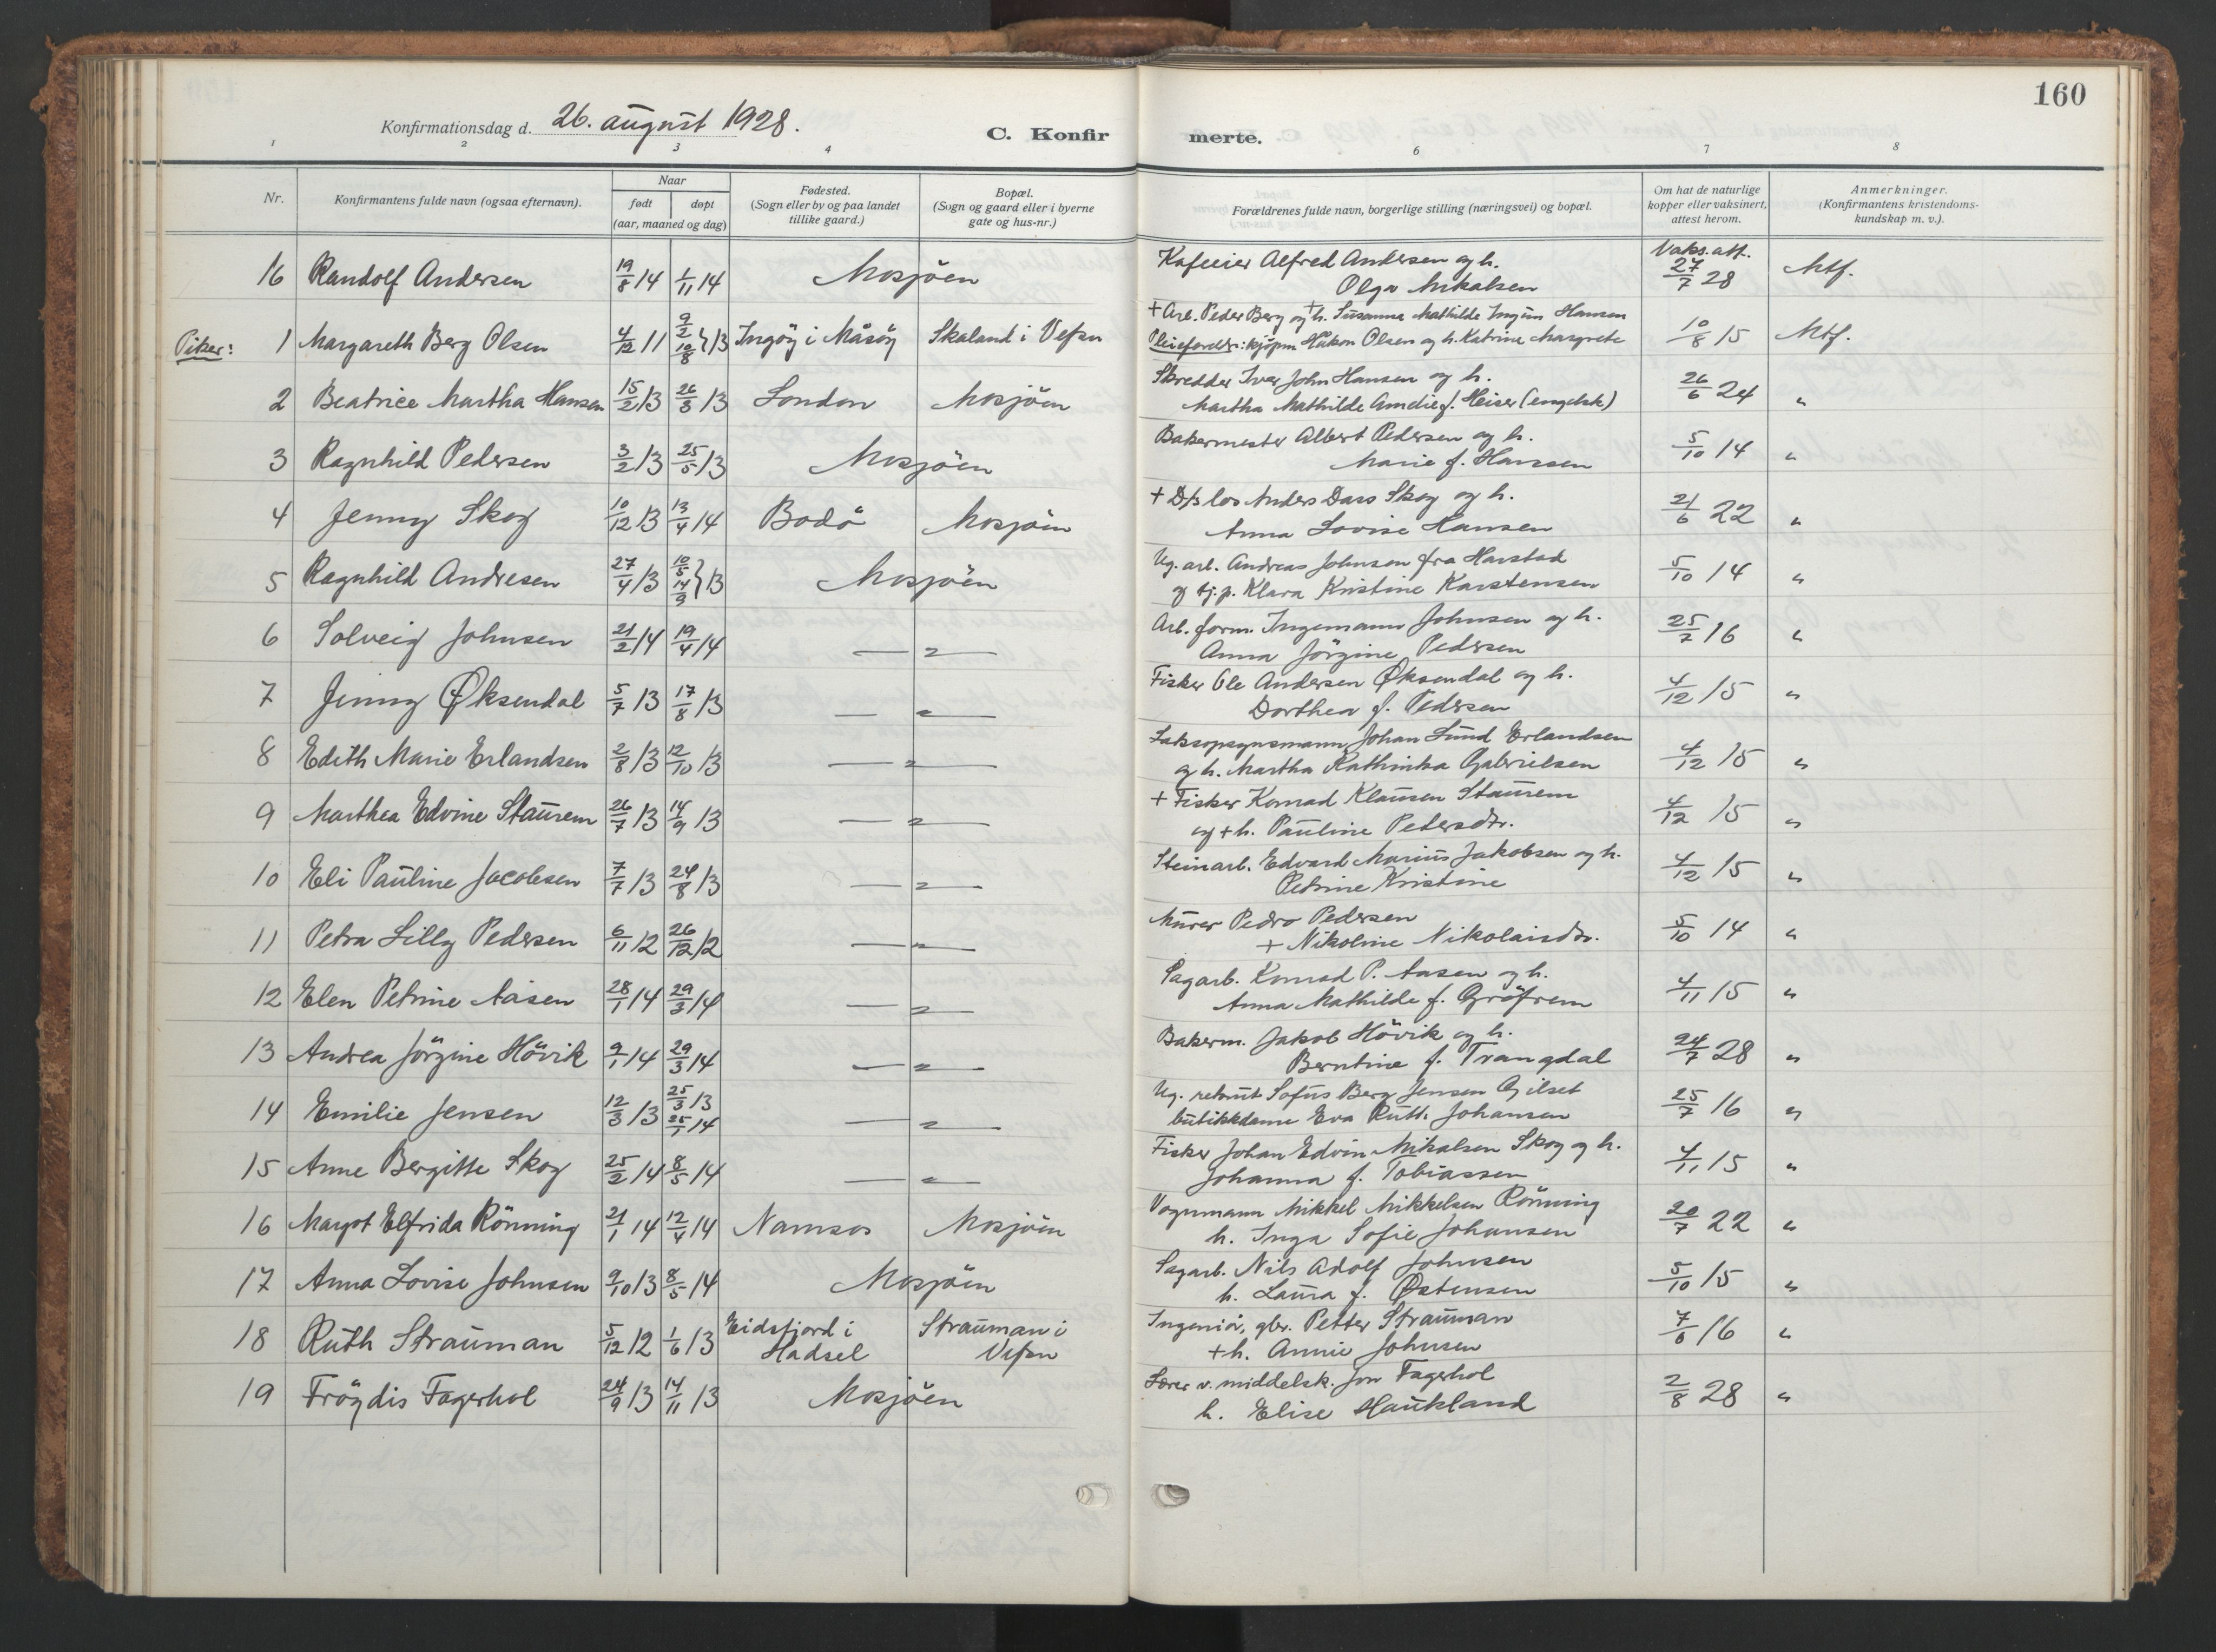 160
Konfirmationsdag d. 26. august 1928.
C. Konfirmerte.
1 2 3 4 6 7 8
Nr.
Konfirmantens fulde navn (ogsaa efternavn).
Naar
født døpt
(aar, maaned og dag)
Fødested.
(Sogn eller by og paa landet
tillike gaard.)
Bopæl.
(Sogn og gaard eller i byerne
gate og hus-nr.)
Forældrenes fulde navn, borgerlige stilling (næringsvei) og bopæl.
Om hat de naturlige
kopper eller vaksinert,
attest herom.
Anmerkninger.
(Konfirmantens kristendoms-
kundskap m. v.).
16 Randolf Andersen 19/8 14 1/11 14 Mosjöen Kafeeier Alfred Andersen og h. Vaks.att. 27/7 28 Mtf.
Olga Mikalsen
Piker: 1 Margareth Berg Olsen 4/12 11 9/2 10/8 } 13 Ingöy i Måsöy Skaland i Vefsn + Arb. Peder Berg og + h. Susanna Mathilde Ingum Hansen 10/8 15 Mtf.
Pleieforeldr.: kjøpm Håkon Olsen og h. Katrine Margrete
2 Beatrice Martha Hansen 15/2 13 26/3 13 London Mosjöen Skredder Iver John Hansen og h. 26/6 24 "
Martha Mathilde Amelie f. Heiser (engelsk)
3 Ragnhild Pedersen 3/2 13 25/5 13 Mosjöen Bakermester Albert Pedersen og h. 5/10 14 "
Marie f. Hanssen
4 Jenny Skog 10/12 13 13/4 14 Bodö Mosjöen + D/s los Anders Dass Skog og h. 21/6 22 "
Anna Lovise Hansen
5 Ragnhild Andresen 27/4 13 10/5 14/9 } 13 Mosjöen Ug. arb. Andreas Johnsen fra Harstad 5/10 14 "
og tj.p. Klara Kristine Karstensen
6 Solveig Johnsen 21/2 14 19/4 14 — " — Arb. form. Ingemann Johnsen og h. 25/7 16 "
Anna Jörgine Pedersen
7 Jenny Øksendal 5/7 13 17/8 13 — " — Fisker Ole Andersen Øksendal og h. 4/12 15 "
Dorthea f. Pedersen
8 Edith Marie Erlandsen 2/8 13 12/10 13 — " — Laksopsynsmann Johan Lund Erlandsen 4/12 15 "
og h. Martha Kathinka Gabrielsen
9 Marthea Edvine Staurem 26/7 13 14/9 13 — " — + Fisker Konrad Klausen Staurem 4/12 15 "
og + h. Pauline Petersdtr.
10 Eli Pauline Jacobsen 7/7 13 24/8 13 — " — Steinarb. Edvard Marius Jakobsen og h. 4/12 15 "
Petrine Kristine
11 Petra Lilly Pedersen 6/11 12 26/12 12 — " — Murer Pedro Pedersen 5/10 14 "
+ Nikoline Nikolaisdtr.
12 Elen Petrine Aasen 28/1 14 29/3 14 — " — Sagarb. Konrad P. Aasen og h. 4/11 15 "
Anna Mathilde f. Gröfrem
13 Andrea Jörgine Hövik 9/1 14 29/3 14 — " — Bakerm. Jakob Hövik og h. 24/7 28 "
Berntine f. Trangdal
14 Emilie Jensen 12/3 13 25/3 13 25/1 14 — " — Ug. rekrut Sofus Berg Jensen Gilset 25/7 16 "
butikkdame Eva Ruth Johansen
15 Anne Bergitte Skog 25/2 14 8/5 14 — " — Fisker Johan Edvin Mikalsen Skog og h. 4/11 15 "
Johanna f. Tobiassen
16 Margot Elfrida Rönning 21/1 14 12/4 14 Namsos Mosjöen Vognmann Mikkel Mikkelsen Rönning 20/7 22 "
h. Inga Sofie Johansen
17 Anna Lovise Johnsen 9/10 13 8/5 14 Mosjöen Sagarb. Nils Adolf Johnsen 5/10 15 "
h. Laura f. Østensen
18 Ruth Strauman 5/12 12 1/6 13 Eidsfjord i Hadsel Strauman i Vefsn Ingeniör, gbr. Petter Strauman 7/6 16 "
+ h. Annie Johnsen
19 Fröydis Fagerhol 24/9 13 14/11 13 Mosjöen Lærer v. middelsk. Jon Fagerhol 2/8 28 "
h. Elise Haukland